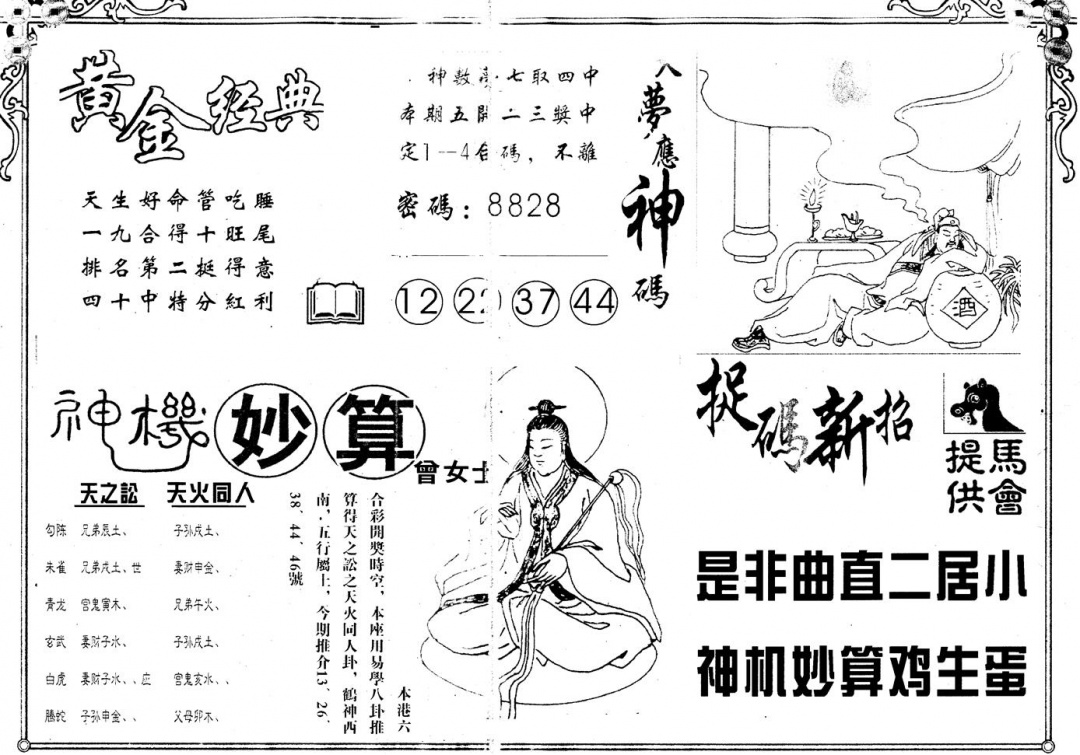 黃金經典
天生好命管吃睡
一九合得十旺尾
排名第二挺得意
四十中特分紅利
神數 七取四中
本期五開二三獎中
定1--4合碼，不離
密碼：8828
12 22 37 44
入夢應神碼
酒
神機妙算
曾女士
天之訟 天火同人
勾陈 兄弟辰土、 子孙戌土、
朱雀 兄弟戌土、世 妻财申金、
青龙 官鬼寅木、 兄弟午火、
玄武 妻财子水、 子孙戌土、
白虎 妻财子水、、应 官鬼亥水、、
腾蛇 子孙申金、、 父母卯木、
本港六
合彩開獎時空，本座用易學八卦推
算得天之訟之天火同人卦，鶴神西
南，五行屬土，今期推介13、26、
38、44、46號
捉碼新招
馬會
提供
是非曲直二居小
神机妙算鸡生蛋